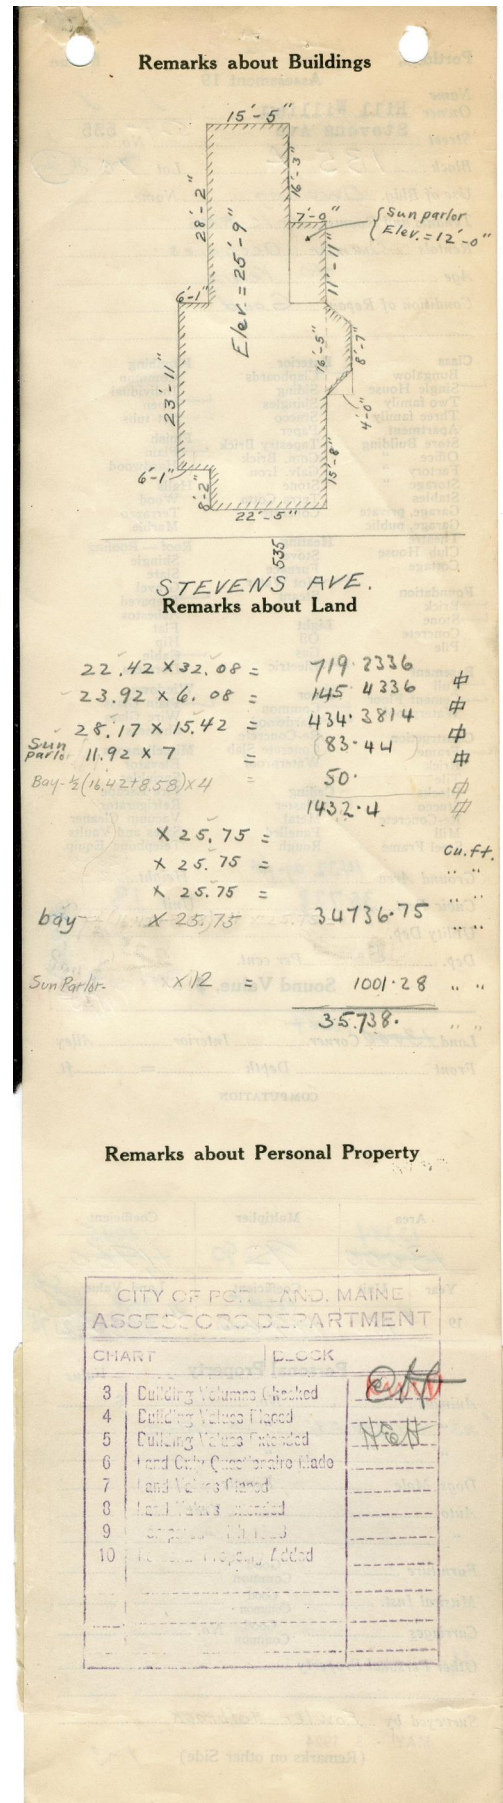 Remarks about Buildings
15'-5"
28'-2"
16'-3"
7'-0"
{ Sun parlor
Elev. = 12'-0"
Elev. = 25'-9"
11'-11"
6'-1"
16'-5"
8'-7"
4'-0"
23'-11"
6'-1"
8'-2"
15'-8"
22'-5"
535
STEVENS AVE.
Remarks about Land
22.42 X 32.08 = 719.2336
23.92 X 6.08 = 145.4336
28.17 X 15.42 = 434.3814
Sun parlor 11.92 X 7 = (83.44
Bay - ½(16.42+8.58)X4 = 50.
1432.4
X 25.75 = cu.ft.
X 25.75 = " "
X 25.75 = " "
bay X 25.75 34736.75 " "
Sun Parlor- X12 = 1001.28 " "
35738. " "
Remarks about Personal Property
CITY OF PORTLAND, MAINE
ASSESSORS DEPARTMENT
CHART BLOCK
3 Building Volumes Checked
4 Building Values Placed
5 Building Values Extended HEH
6 Land Only Questionaire Made
7 Land Values Placed
8 Land Values Extended
9
10 Personal Property Added